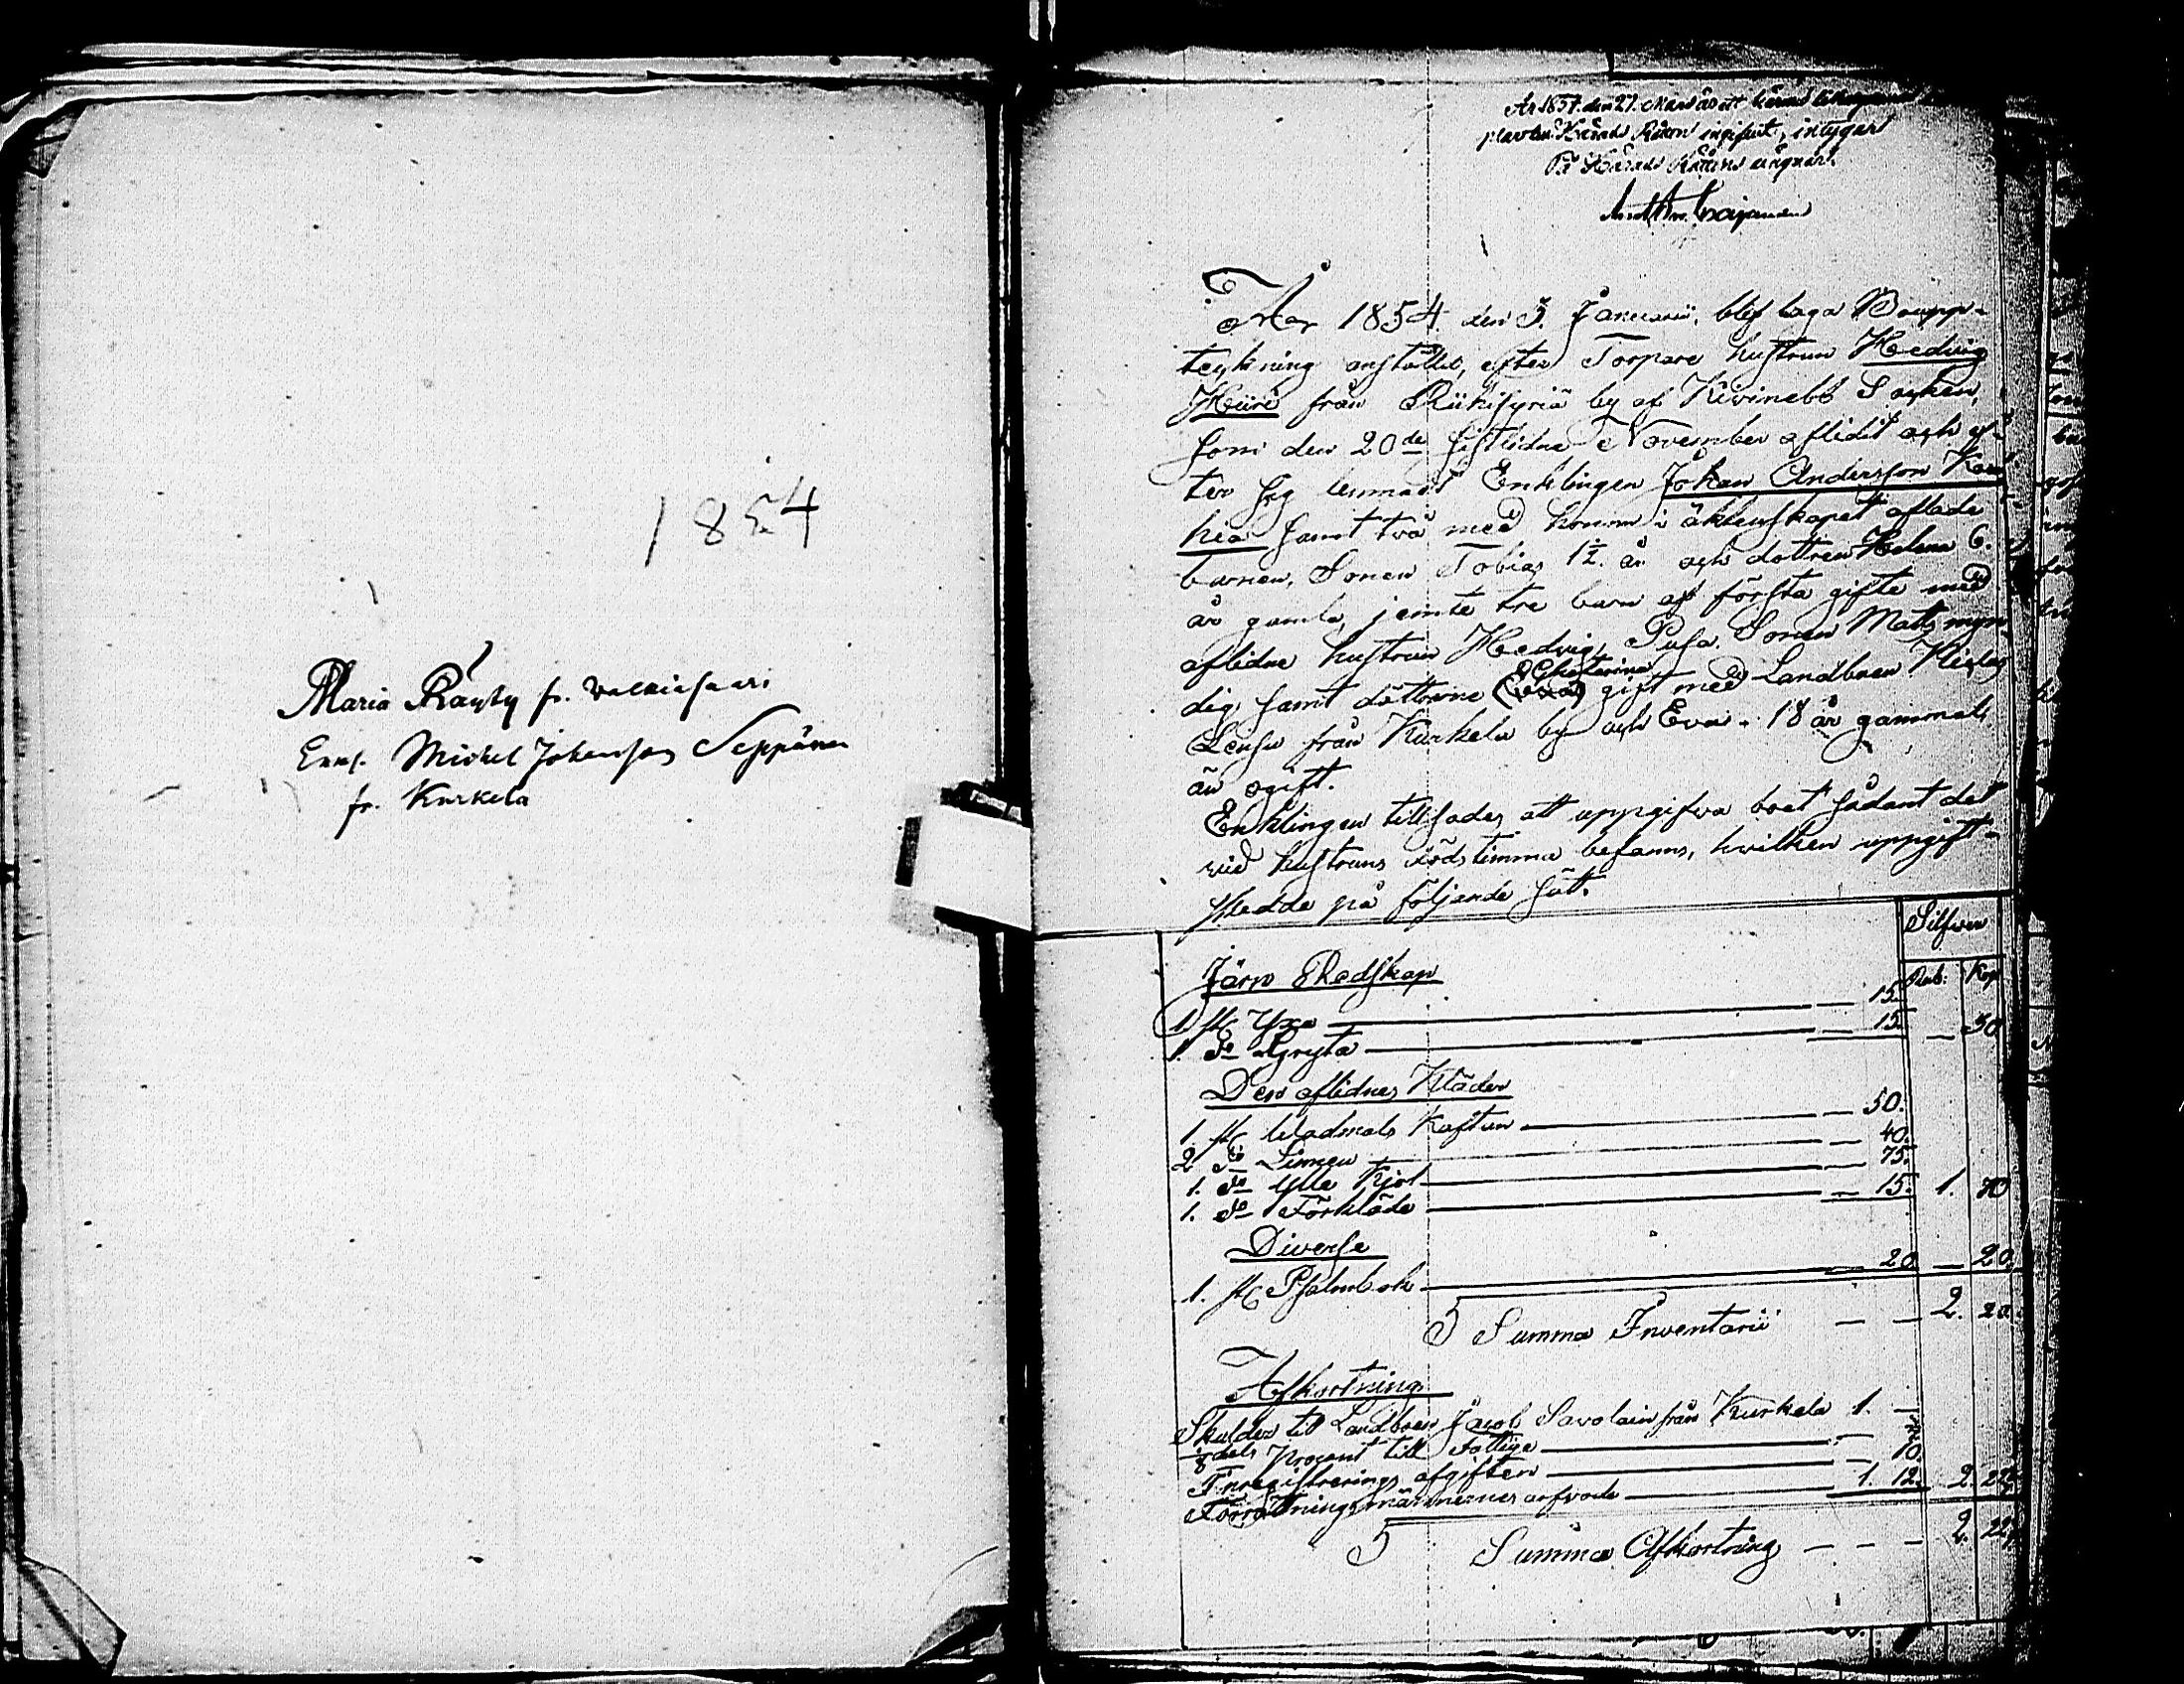 1854
Maria Räyty fr. Walkiasaari
Enkl. Michel Johansson Seppänen
fr. Kurkela
År 1854. den 27. Mars
Härads Rätten ingifvit, intygar
På Härads Rättens vägnar:
År 1854 den 3. Januarii, blef laga Boupp-
teckning anstäldt, efter Torpare hustrun Hedvig
Hiiri från Riihisyriä by af Kivinebb Socken,
som den 20de sistlidne November aflidit och ef-
ter sig lemnadt Enklingen Johan Andersson Kar-
hia samt två med honom i äktenskapet aflade
barnen, Sonen Tobias 1½. år och dottren Helena 6.
år gamla, jemte tre barn af första gifte med
aflidne hustrun Hedvig Pusa. Sonen Matts myn-
dig, samt döttrarne Catharina gift med Landboen
från Kurkela by och Eva - 18 år gammal,
än ogift.
Enklingen tillsades att uppgifva boet sådant det
vid hustruns dödstimma befanns, hvilken uppgift-
skedde på följande sätt.
Silfver
Rub. Kop
Järn Redskap
1 st Yxa — 15.
1. do Gryta — 15 — 30
Den aflidnes Kläder
1. st Wadmals Kaftan — 50.
2 do Linnen — 40.
1. do Ylle Kjol — 75.
1. do Förkläde — 15. 1. 80
Diverse
1. st Psalmbok — 20 — 20.
S Summa Inventarii — — 2. 20.
Afkortning
Skulder till Landboen Jacob Savolain från Kurkela 1. —
⅛ dels Procent till Fattige —
Inregistrerings afgiften — 10.
Förrättningsmännernes arfvode — 1. 12. 2. 22
S Summa Afkortning — — — 2. 22